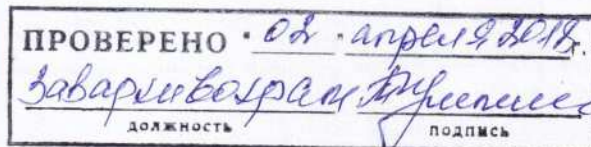 ПРОВЕРЕНО "02" апреля 2018г.
Завархивохран
должность подпись